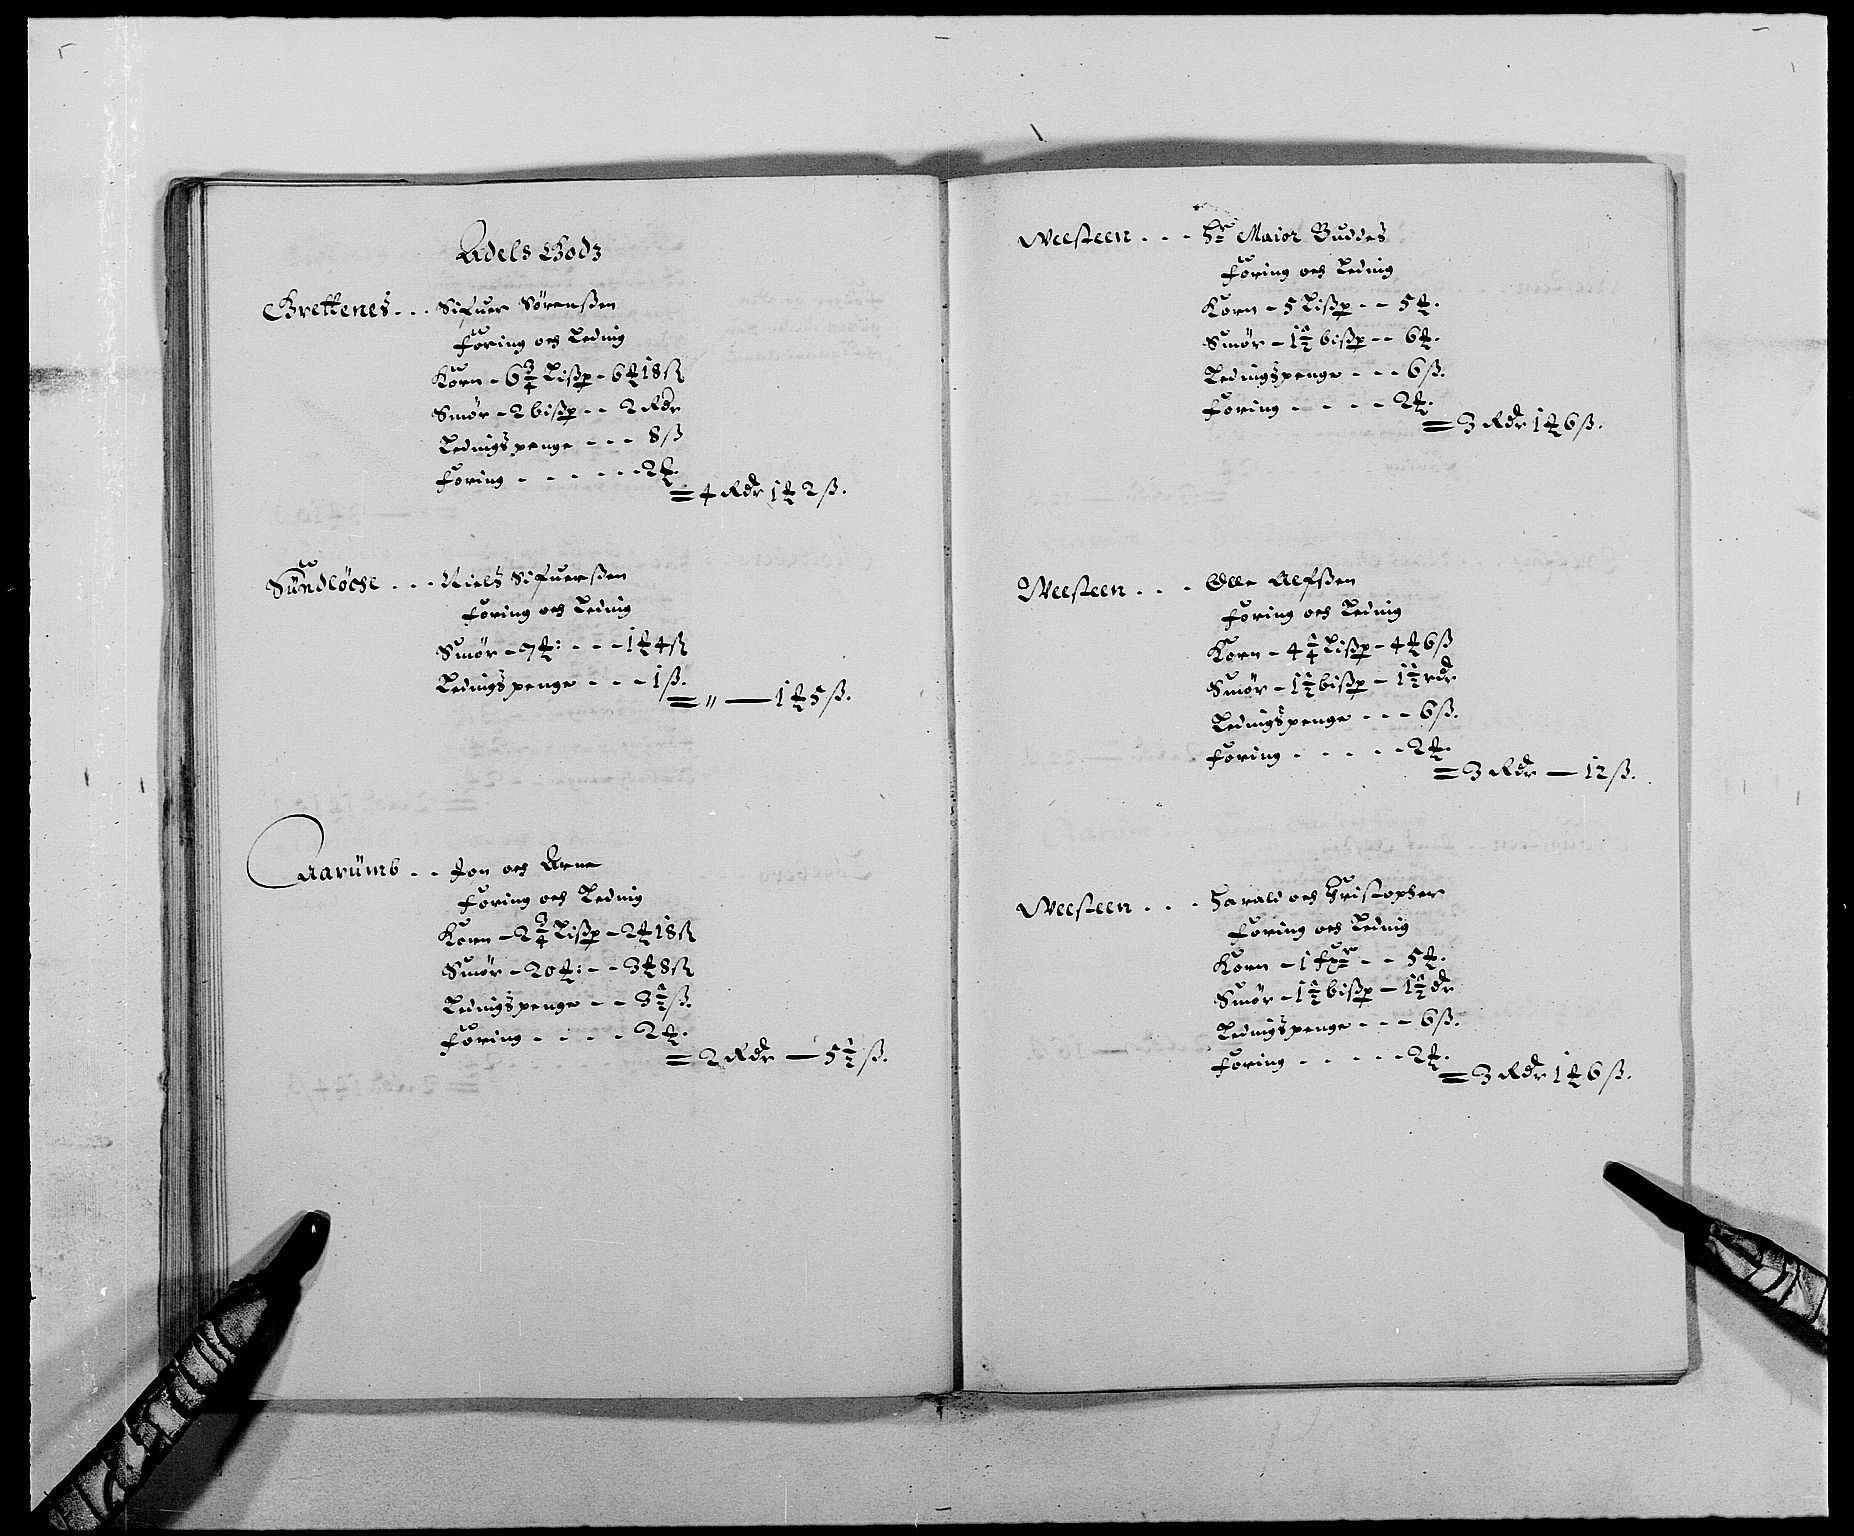 Adels Godz
Grettenes - - - Sifuer Sørenßen
Foring och Leding
Korn - 6 3/4 Lißp - 6 ₰ 18 ß
Smør - 2 bißp - - 2 Rdr
Ledingspenge - - - 8 ß
Foring - - - - - - 2 ₰.
= 4 Rdr 1 ₰ 2 ß.
Sündløche - - - Niels Sifuerßen
Foring och Leding
Smør - 7 ₰: - - - 1 ₰ 4 ß
Ledingspenge - - - 1 ß.
= " — 1 ₰ 5 ß.
Aarümb - - Jon och Arne
Foring och Leding
Korn - 2 3/4 Lißp - 2 ₰ 18 ß
Smør - 20 ₰: - - 3 ₰ 8 ß
Ledingspenge - - 3 1/2 ß.
Foring - - - - - 2 ₰.
= 2 Rdr — 5 1/2 ß.
Weesteen - - - Hr Maior Buddes
Foring och Leding
Korn - 5 Lißp - - 5 ₰.
Smør - 1 1/2 bißp - - 6 ₰.
Ledingspenge - - - 6 ß.
Foring - - - - - 2 ₰.
= 3 Rdr 1 ₰ 6 ß.
Weesteen - - - Olle Alfßen
Foring och Leding
Korn - 4 1/4 Lißp - 4 ₰ 6 ß
Smør - 1 1/2 bißp - 1 1/2 rdr
Ledingspenge - - - 6 ß.
Foring - - - - - 2 ₰.
= 3 Rdr — 12 ß.
Weesteen - - - Harald och Christopher
Foring och Leding
Korn - 1 - - 5 ₰.
Smør - 1 1/2 bißp - 1 1/2 dr
Ledingspenge - - - 6 ß.
Foring - - - - - 2 ₰.
= 3 Rdr 1 ₰ 6 ß.